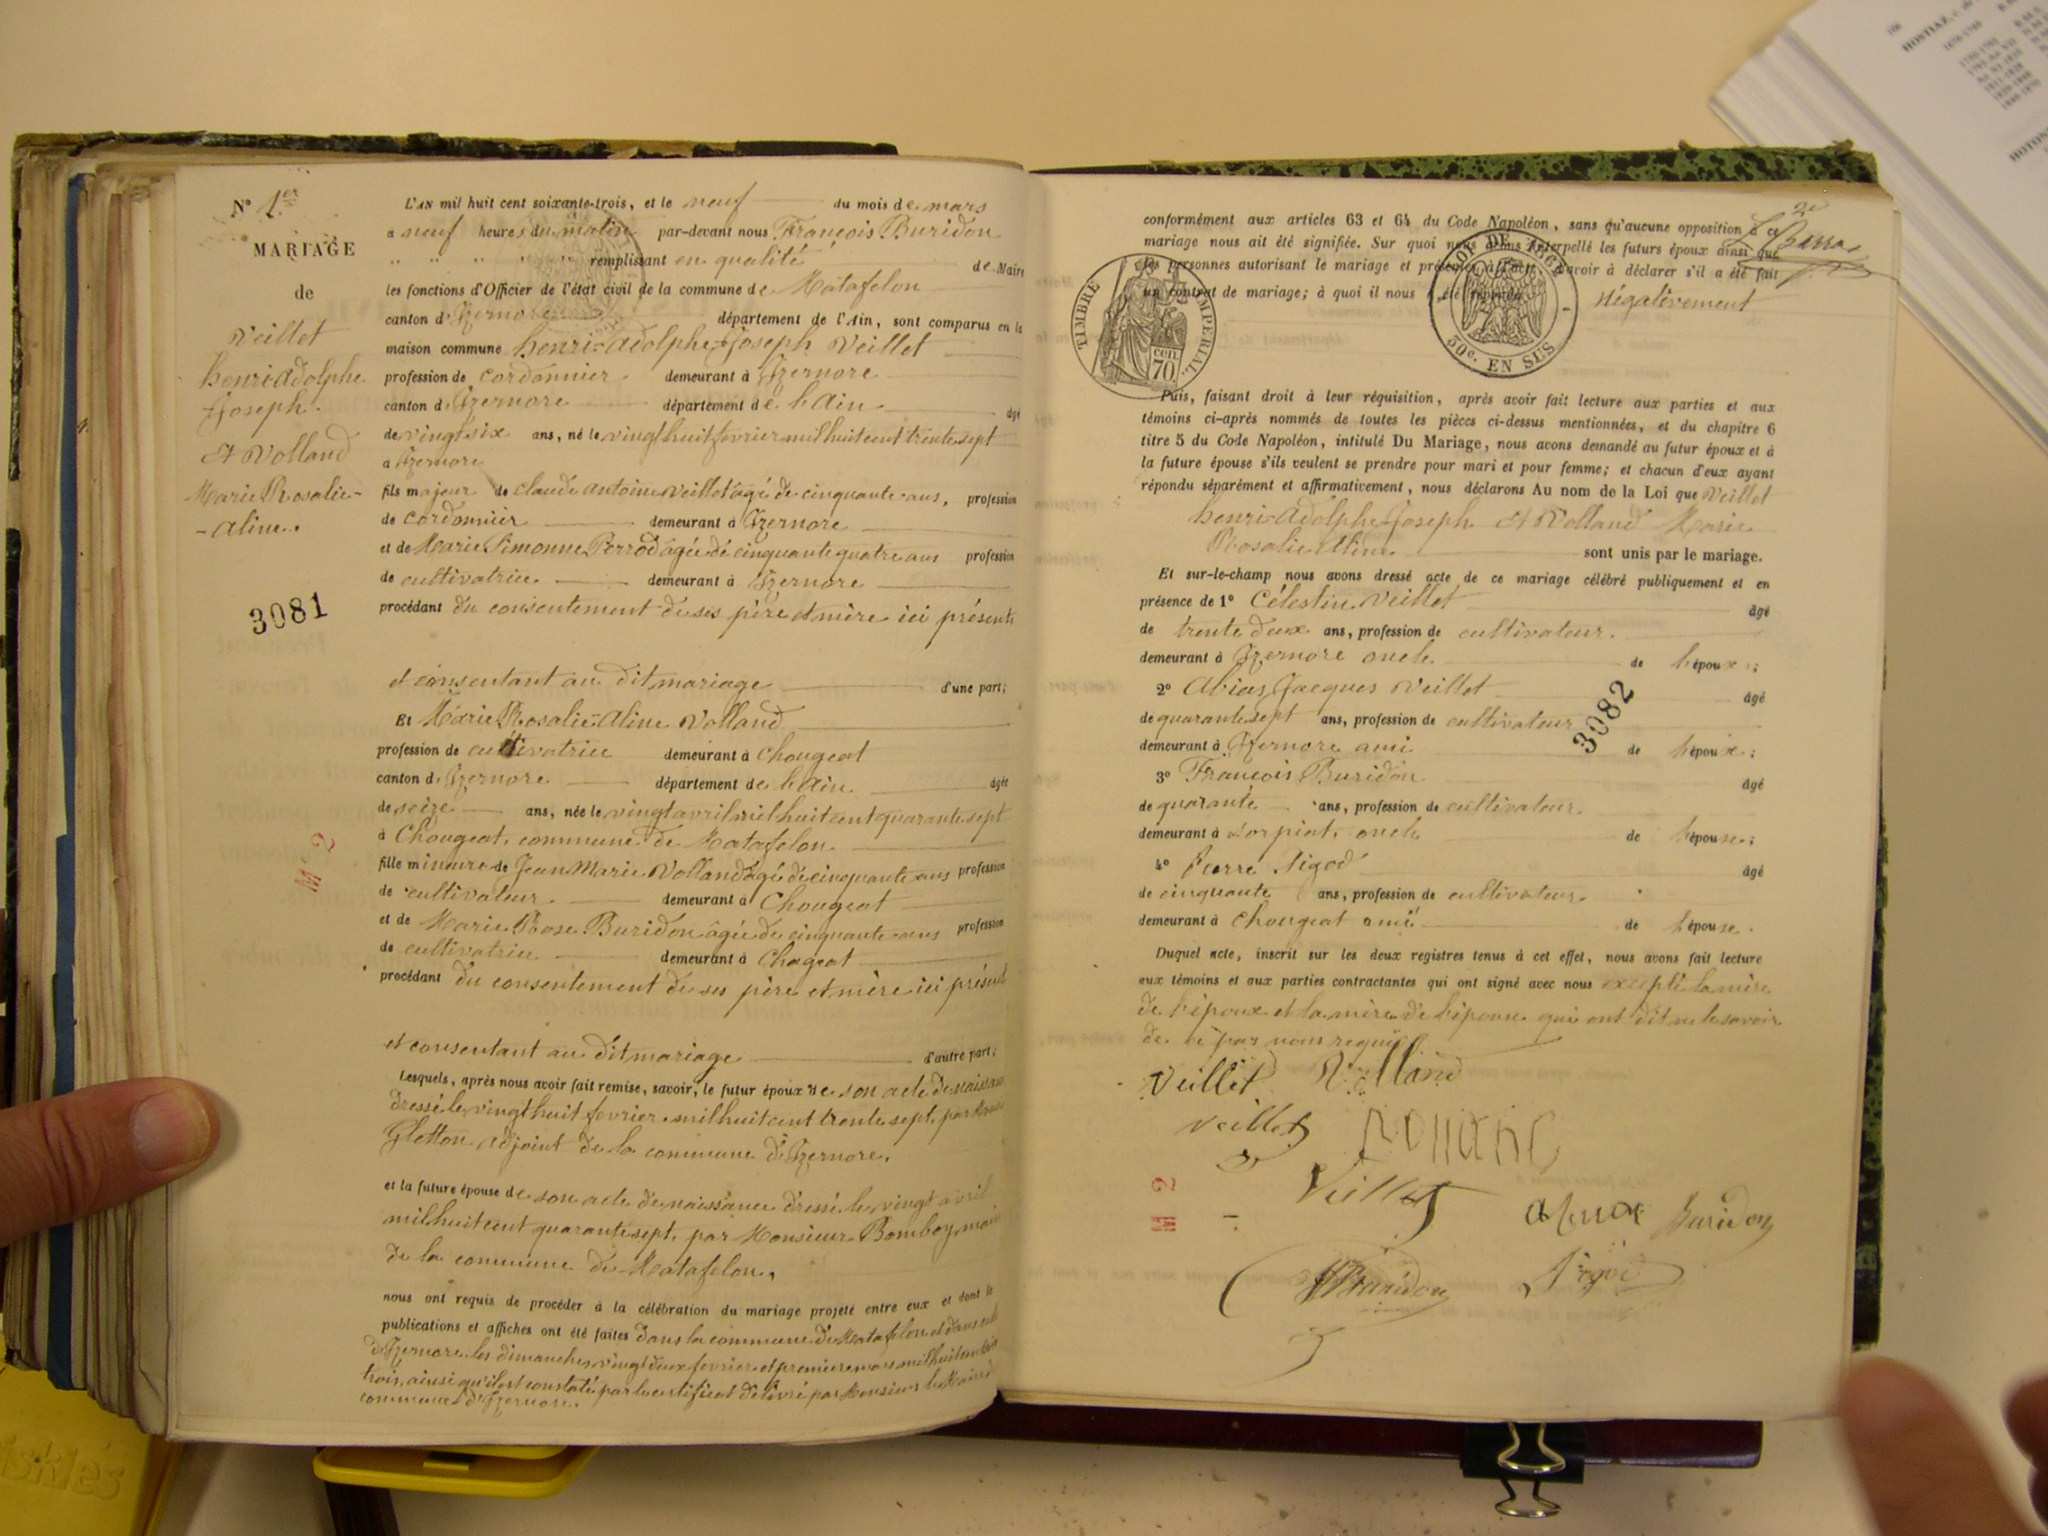 N° 1er
MARIAGE
de
Veillet
henri Adolphe
Joseph.
Et Volland
Marie Rosalie-
-Aline.
3081
M 2
L'AN mil huit cent soixante-trois, et le neuf du mois de mars
a neuf heures du matin par-devant nous François Buridon
" " " " " remplissant en qualité de Maire
les fonctions d'Officier de l'état civil de la commune de Matafelon
canton d'Izernore département de l'Ain, sont comparus en la
maison commune henri-Adolphe-Joseph Veillet
profession de cordonnier demeurant à Izernore
canton d'Izernore département de l'Ain âgé
de vingt six ans, né le vingt huit fevrier mil huit cent trente sept
a Izernore
fils majeur de claude antoine Veillet âgé de cinquante ans, profession
de cordonnier demeurant à Izernore
et de Marie Simonne Perrod âgée de cinquante quatre ans profession
de cultivatrice demeurant à Izernore
procédant du consentement de ses père et mère ici présents
et consentant au dit mariage d'une part;
Et Marie Rosalie-Aline Volland
profession de cultivatrice demeurant à chougeat
canton d'Izernore département de l'Ain âgée
de seize ans, née le vingt avril mil huit cent quarante sept
à Chougeat, commune de Matafelon
fille mineure de Jean Marie Volland âgé de cinquante ans profession
de cultivateur demeurant à Chougeat
et de Marie Rose Buridon âgée de cinquante ans profession
de cultivatrice demeurant à Chogeat
procédant du consentement de ses père et mère ici présents
et consentant au dit mariage d'autre part;
Lesquels, après nous avoir fait remise, savoir, le futur époux de son acte de naissance
dressé le vingt huit fevrier mil huit cent trente sept, par
Gletton adjoint de la commune d'Izernore.
et la future épouse de son acte de naissance dressé le vingt avril
mil huit cent quarante sept, par Monsieur Bomboy, maire
de la commune de Matafelon.
nous ont requis de procéder à la célébration du mariage projeté entre eux et dont les
publications et affiches ont été faites dans la commune de Matafelon et dans celle
d'Izernore les dimanches vingt deux fevrier et premier mars mil huit cent soixante
trois, ainsi qu'il est constaté par le certificat délivré par Monsieur le Maire de la
commune d'Izernore.
2e
conformément aux articles 63 et 64 du Code Napoléon, sans qu'aucune opposition à ce
mariage nous ait été signifiée. Sur quoi nous avons interpellé les futurs époux ainsi que
les personnes autorisant le mariage et présentes à l'acte, d'avoir à déclarer s'il a été fait
un contrat de mariage; à quoi il nous a été répondu négativement
TIMBRE IMPERIAL
cen. 70
30c. EN SUS
Puis, faisant droit à leur réquisition, après avoir fait lecture aux parties et aux
témoins ci-après nommés de toutes les pièces ci-dessus mentionnées, et du chapitre 6
titre 5 du Code Napoléon, intitulé Du Mariage, nous avons demandé au futur époux et à
la future épouse s'ils veulent se prendre pour mari et pour femme; et chacun d'eux ayant
répondu séparément et affirmativement, nous déclarons Au nom de la Loi que Veillet
henri-Adolphe-Joseph Et Volland Marie
Rosalie Aline sont unis par le mariage.
Et sur-le-champ nous avons dressé acte de ce mariage célébré publiquement et en
présence de 1° Célestin Veillet âgé
de trente deux ans, profession de cultivateur.
demeurant à Izernore oncle de l'époux;
2° Abias Jacques Veillet âgé
de quarante sept ans, profession de cultivateur
demeurant à Izernore ami de l'époux;
3082
3° François Buridon âgé
de quarante ans, profession de cultivateur.
demeurant à Sorpiat, oncle de l'épouse;
4° Pierre Nigod âgé
de cinquante ans, profession de cultivateur.
demeurant à chougeat ami de l'épouse.
Duquel acte, inscrit sur les deux registres tenus à cet effet, nous avons fait lecture
aux témoins et aux parties contractantes qui ont signé avec nous excepté la mère
de l'époux et la mère de l'épouse qui ont dit ne le savoir
de ce par nous requis
Veillet Volland
Veillet
Veillet Buridon
M 2
Buridon
HOSTIAZ